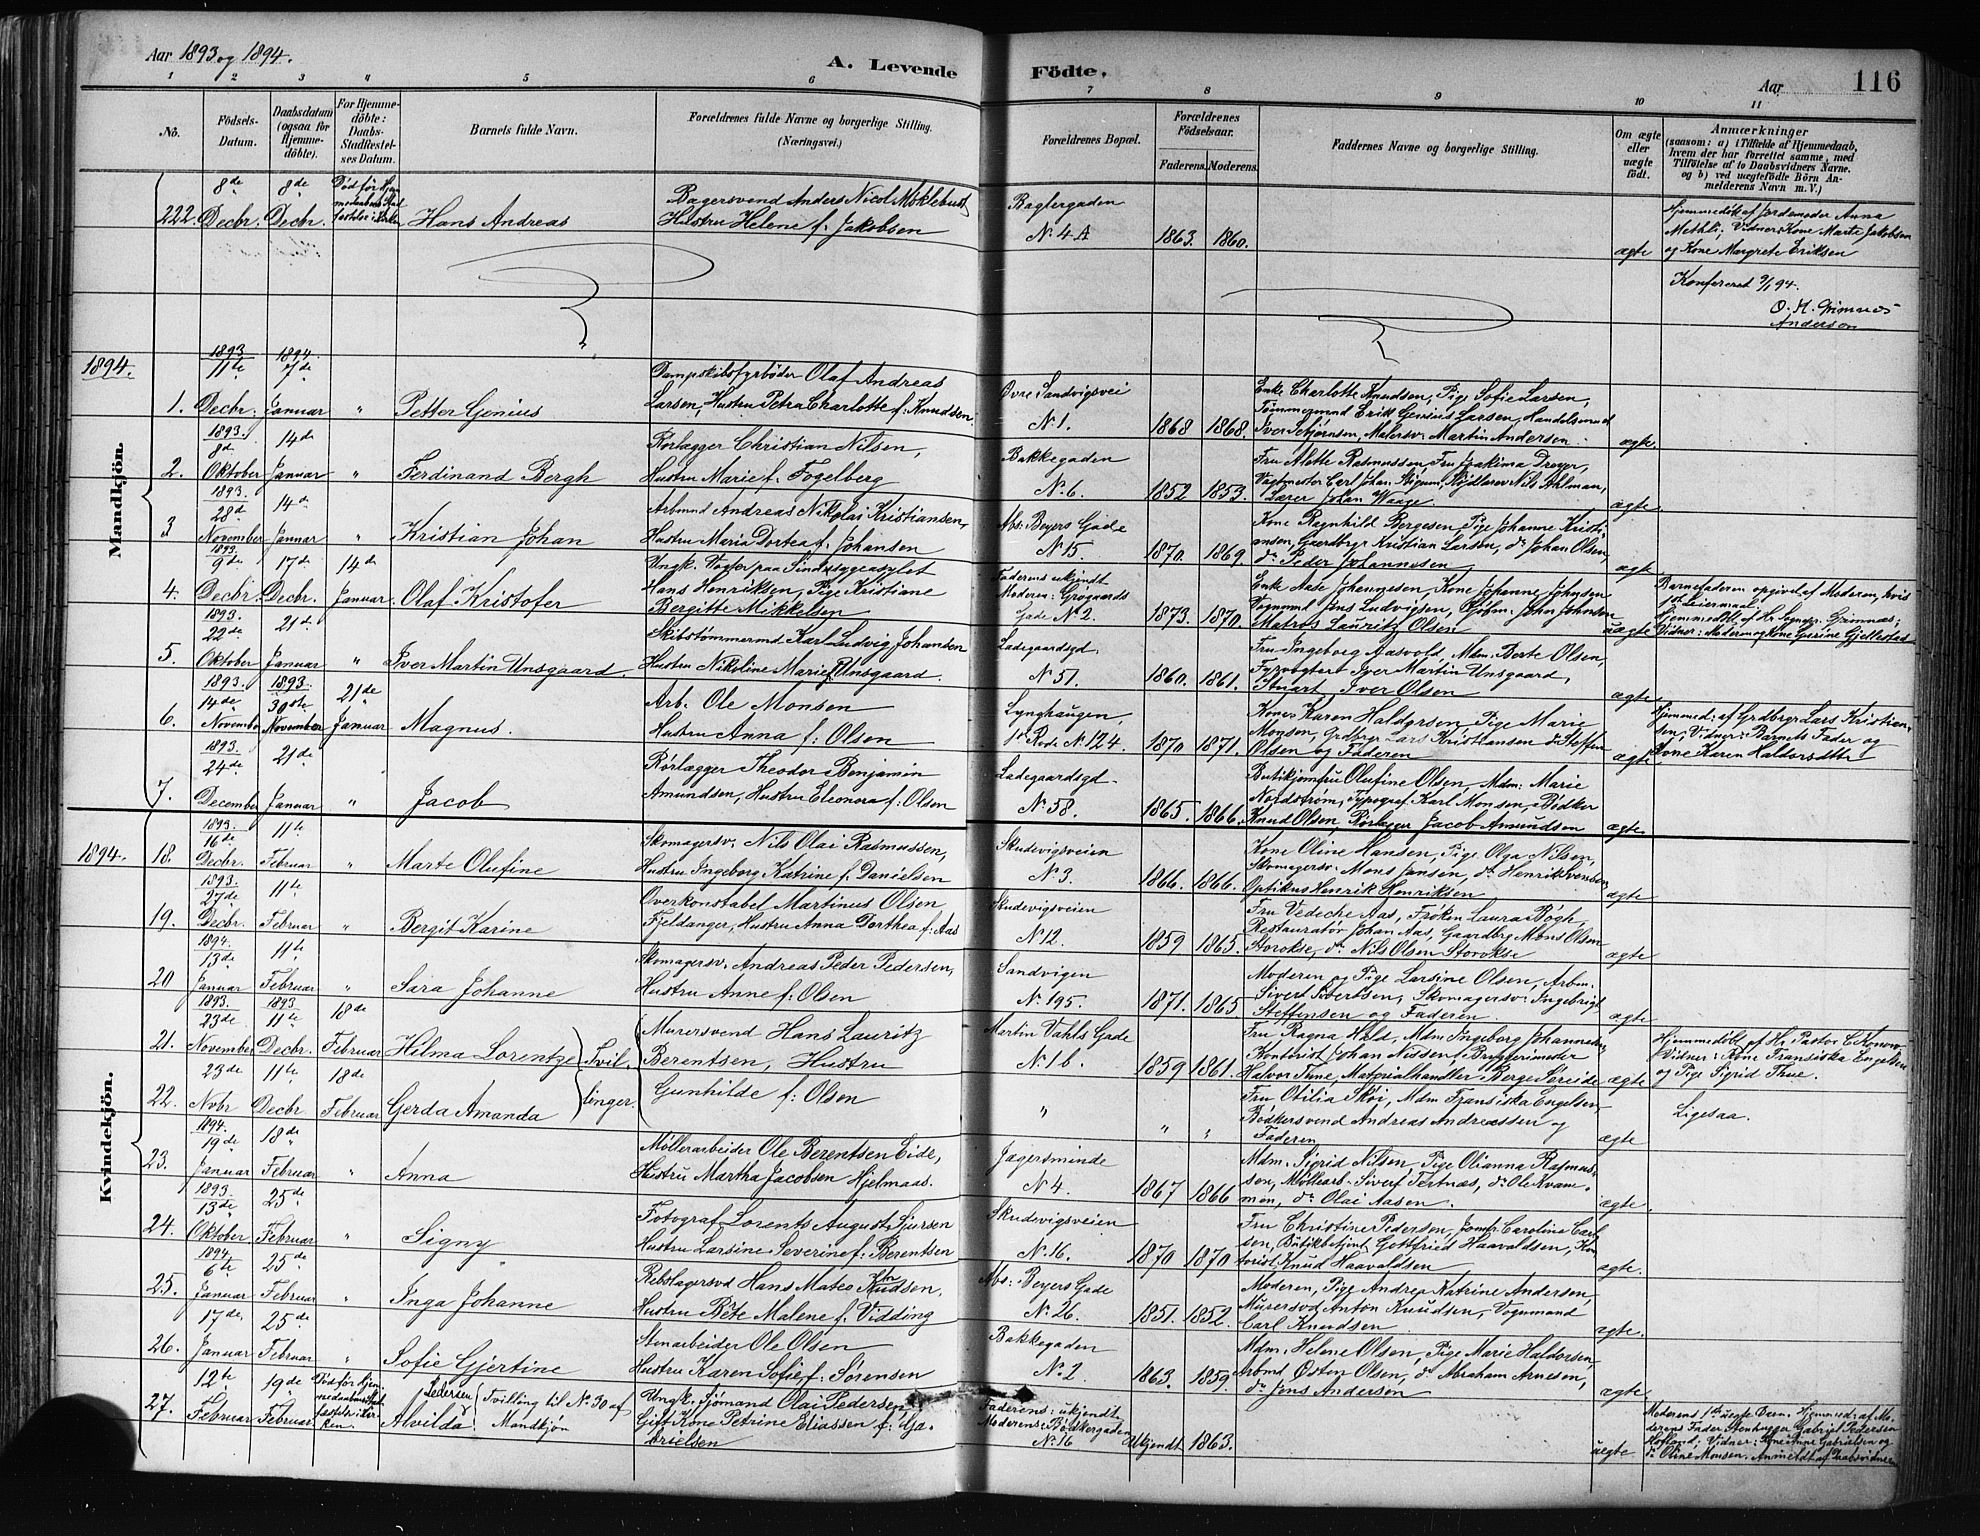 Aar 1893 og 1894.
A. Levende Födte.
Aar 116
1 2 3 " 5 6 7 8 9 10 11
Nô.
Födsels-Datum.
Daabsdatum (ogsaa for Hjemme-döbte).
For Hjemme-döbte: Daabs-Stadfæstel-ses Datum.
Barnets fulde Navn.
Forældrenes fulde Navne og borgerlige Stilling. (Næringsvei.)
Forældrenes Bopæl.
Forældrenes Födselsaar.
Faderens. Moderens.
Faddernes Navne og borgerlige Stilling.
Om ægte eller uægte födt.
Anmærkninger
(saasom: a) i Tilfælde af Hjemmedaab,
hvem der har forrettet samme, med
Tilföielse af to Daabsvidners Navne.
og b) ved uægtefödte Börn An-
melderens Navn m. V.)
222. 8de Decbr. 8de Decbr. Död för Hjemmedaabens Stadfæstelse i Kirken Hans Andreas
Bagersvend Anders Nicol Möklebust
Hustru Helene f: Jakobsen
Baglergaden
№ 4 A 1863. 1860. ægte
Hjemmedöbt af Jordemoder Anna
Methli; Vidner: Kone Marte Jakobsen
og Kone Margrete Eriksen
Konfereret 9/1 94.
O. H. Grimnes
Anderson
1894.
Mandkjön.
1. 1893 11te Decbr. 1894 7de Januar " Petter Genius
Dampskibsfyrböder Olaf Andreas
Larsen, Hustru Petra Charlotte f: Knudsen
Övre Sandvigsvei
№ 1. 1868 1868.
Enke Charlotte Knudsen, Pige Sofie Larsen,
Tömmermand Erik Genius Larsen, Handelsmand
Iver Sebjørnsen, Malersv: Martin Andersen ægte.
2. 1893. 8d Oktober 14de Januar " Ferdinand Bergh
Rörlægger Christian Nilsen,
Hustru Marie f: Fogelberg
Bakkegaden
№ 6. 1852 1853.
Fru Mette Rasmussen, Fru Joakima Dreyer,
Vagtmester Carl Johan Stigum, Nils Ahlman,
Lærer Johan Waage ægte
3 1893. 28d November 14de Januar " Kristian Johan
Arbmnd Andreas Nikolai Kristiansen,
Hustru Maria Dortea f: Johansen
Abs: Beyers Gade
№ 15. 1870. 1869.
Kone Ragnhild Bergesen, Pige Johanne Kristi-
ansen, Gaardbrgr Kristian Larsen, do Johan Olsen,
do Peder Johannesen ægte
4. 1893. 9de Decbr. 17de Decbr. 14de Januar. Olaf Kristofer
Ungk. Vogter paa Sindssygeasylet
Hans Henriksen, Pige Kristiane
Bergitte Mikkelsen
Faderens ukjendt
Moderen: Grogaards
Gade № 2. 1873. 1870.
Enke Aase Johannesen, Kone Johanne Johnsen
Vognmnd Jens Ludvigsen, John Johnsen
Matros Lauritz Olsen uægte
Barnefaderen opgivet af Moderen, hvis
1ste Leiermaal.
Hjemmedöbt af Hr. Sognepr. Grimnæs;
Vidner: Moderen og Kone Gurine Gjellestad
5. 1893 22de Oktober 21de Januar " Iver Martin Unsgaard.
Skibstömmermd Karl Ludvig Johansen
Hustru Nikoline Marie f Unsgaard.
Ladegaardsgd.
№ 51. 1860. 1861.
Fru Ingeborg Aasvold, Mdm: Berte Olsen,
Fyrvogter Iver Martin Unsgaard,
Stuart Iver Olsen ægte
6. 1893. 14de November 1893 30te November 21de Januar Magnus.
Arb. Ole Monsen
Hustru Anna f: Olsen
Lynghaugen,
1ste Rode № 124. 1870 1871.
Kone Karen Haldorsen, Pige Marie
Monsen, Grdbrgr Lars Kristiansen do Steffen
Olsen og Faderen ægte
Hjemmed: af Grdbrgr Lars Kristian-
sen, Vidner: Barnets Fader og
Kone Karen Haldorsdtter
7. 1893. 24de December 21de Januar " Jacob
Rörlægger Theodor Benjamin
Amundsen, Hustru Eleonora f: Olsen
Ladegaardsgd.
№ 58. 1865. 1866.
Butikjomfru Olufine Olsen, Mdm: Marie
Nordström, Typograf Karl Monsen, Bödker
Knud Olsen, Rörlægger Jacob Amundsen ægte
1894.
Kvindekjön.
18. 1893. 16de Decbr. 11te Februar " Marte Olufine
Skomagersv. Nils Olai Rasmussen,
Hustru Ingeborg Katrine f. Danielsen
Skudevigsveien
№ 3. 1866. 1866.
Kone Oline Hansen, Pige Olga Nilsen,
Skomagersv. Mons Jansen, do Henrik Svendsen
Optikus Henrik Henriksen ægte
19. 1893. 27de Decbr. 11te Februar " Bergit Karine
Overkonstabel Martinus Olsen
Fjeldanger, Hustru Anna Dorthea f: Aas
Skudevigsveien
№ 12. 1859 1865.
Fru Vedeche Aas, Fröken Laura Bögh,
Restauratør Johan Aas, Gaardbrg Mons Olsen
Storokse, do Nils Olsen Storokse ægte
20 1894. 13de Januar 11te Februar " Sara Johanne
Skomagersv. Andreas Peder Pedersen,
Hustru Anne f: Olsen
Sandvigen
№ 195. 1871. 1865
Moderen og Pige Larsine Olsen, Arbm.
Sivert Sivertsen, Skomagersv: Ingebrigt
Steffensen og Faderen. ægte
21. 1893. 23de November 1893 11te Decbr. 18de Februar Hilma Lorentze Tvil-
Murersvend Hans Lauritz
Berentsen, Hustru
Martin Vahls Gade
№ 1b. 1859 1861.
Fru Ragna Hald, Mdm Ingeborg Johannesen
Kontorist Johan Nissen, Bryggerimester
Halvor Thue, Materialhandler Berge Söreide ægte
Hjemmedöbt af Hr Pastor C Konow
Vidner: Kone Fransiska Engelsen
og Pige Sigrid Thue.
22. 23de Novbr 11te Decbr 18de Februar Gerda Amanda linger.
Gunhilde f: Olsen
" " "
Fru Otilia Sköi, Mdm Fransiska Engelsen,
Bödkersvend Andreas Andreassen og
Faderen ægte
Ligesaa.
23. 1894. 19de Januar 18de Februar " Anna
Möllerarbeider Ole Berentsen Eide,
Hustru Martha Jacobsen Hjelmaas.
Jægersminde
№ 4. 1867 1866
Mdm. Sigrid Nilsen, Pige Olianna Rasmus-
sen, Möllearb. Sivert Tertnæs, do Ole Kvam-
men, do Olai Aasen. ægte.
24. 1893. 13de Oktober 25de Februar " Signy
Fotograf Lorents August Sjursen
Hustru Larsine Severine f: Berentsen
Skudevigsveien
№ 16. 1870 1870
Fru Christine Pedersen, Jomfr Carolina Carl-
sen, Butikbetjent Gottfried Haavaldsen, Kon-
torist Knud Haavaldsen ægte.
25. 1894. 6te Januar 25de Februar " Inga Johanne
Rebslagersvd Hans Mateo Knudsen,
Hustru Bete Malene f: Vidding
Abs: Beyers Gade
№ 26. 1851. 1852.
Moderen, Pige Andrea Katrine Andersen,
Murersvd Anton Knudsen, Vognmand
Carl Knudsen ægte.
26. 17de Januar 25de Februar " Sofie Gjertine
Stenarbeider Ole Olsen
Hustru Karen Sofie f: Sørensen
Bakkegaden
№ 2 1863. 1859.
Mdm. Helene Olsen, Pige Marie Haldorsen,
Arbmd Östen Olsen, do Abraham Arnesen,
do Jens Andersen ægte
27. 12te Februar 19de Februar Död för Hjemmedaabens Stadfæstelse i Kirken. Alvilda Pedersen Tvilling til № 30 af Mandkjön
Ungk. Sjömand Olai Pedersen
Gift Kone Petrine Eliassen f: Ga-
brielsen
Faderens: ukjendt
Moderens: Bödkergaden
№ 16 Ukjendt 1863. uægte
Moderens 1ste uægte Barn. Hjemmed: af Mo-
derens Fader Stenhugger Gabriel Pedersen
Vidner: Kone Anne Gabrielsen og
do Oline Monsen. Anmeldt af Daabsvidnerne